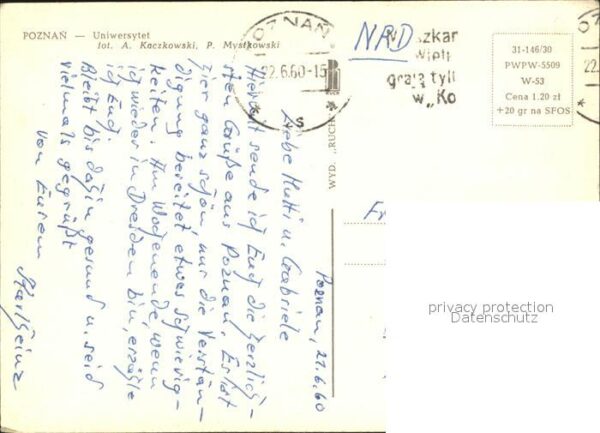 POZNAŃ — Uniwersytet
fot. A. Kaczkowski, P. Mystkowski
POZNAŃ
22.6.60-15
s
NRD
szkan
wietl
grają tyl
w „Ko
31-146/30
PWPW-5509
W-53
Cena 1.20 zł
+20 gr na SFOS
22.
WYD. „RUCH
Poznan, 21.6.60
Liebe Mutti u. Gabriele
Hiermit sende ich Euch die herzlich-
sten Grüße aus Poznan. Es ist
hier ganz schön, nur die Verstän-
digung bereitet etwas schwierig-
keiten. Am Wochenende, wenn
ich wieder in Dresden bin, erzähle
ich Euch.
Bleibt bis dahin gesund u. seid
vielmals gegrüßt
von Eurem
Karlheinz
Fr
privacy protection
Datenschutz